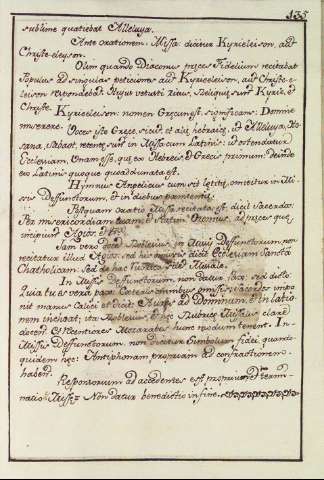 135
sublime quatiebat Alleluya.
Ante orationem Missa dicitur Kyrieleison, aut
Christe-eleyson.
Olim quando Diaconus preces Fidelium recitabat
Populus ad singulas petitiones aut Kyrieeleison, aut Christe-e-
leison respondebat. Hujus vetusti ritus, Reliquiæ sunt Kyrie, et
Christe.
Kyrieeleison: nomen Græcum est, significans: Domine
miserere. Voces istæ Græcæ, sicut et aliæ hebraicæ, ut Alleluya, Ho-
sana, Sabaot, retentæ sunt in Missa cum Latinis: ut ostendatur
Ecclesiam, Unam esse, quæ ex Hebreis et Græcis primum: deinde
ex Latinis quoque coadunata est.
Hymnus Angelicus cum sit lætitiæ, omititur in Mi-
ssis Deffunctorum, et in diebus pœnitentiæ.
Postquam oratio Missæ recitata est, dicit Sacerdos:
Per misericordiam tuam, et statim Oremus, ad preces quæ
incipiunt Agios,
Jam vero quod in Missis Deffunctorum, non
recitatur illud Agios, sed his dicit Ecclesiam Sanctam
Chatholicam. sed de hac
In Missis Deffunctorum, non Datur Pax: sed dicto
Quia tu es vera pax omissis Sacerdos impo-
nit manus Calici et dicit: Habemus ad Dominum. Et in latio-
nem inchoat; ita et hæc Rubricæ Missalis clare
docent et Recentiores Mozarabes hunc modum tenent. In
Missis Deffunctorum, non dicitur Simbolum fidei, quando-
quidem hæc: Antiphonam propriam ad confractionem
habent.
Responsorium ad accedentes est proprium et termi-
natio Missæ: Non datur benedictio in fine.